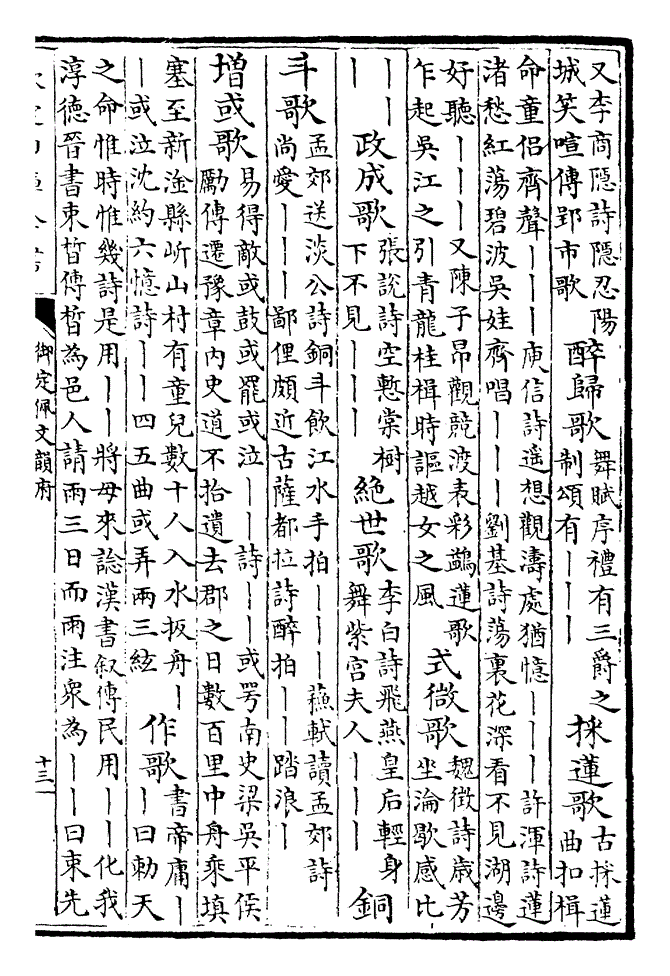 又李商隱詩隱忍陽
城笑喧傳郢市歌
醉歸歌
舞賦序禮有三爵之
制頌有｜｜｜
採蓮歌
古採蓮
曲扣楫
命童侶齊聲｜｜｜庾信詩遥想觀濤處猶憶｜｜｜許渾詩蓮
渚愁紅蕩碧波吳娃齊唱｜｜｜劉基詩蕩裏花深看不見湖邊
好聽｜｜｜又陳子昂觀競渡表彩鷁蓮歌
乍起吳江之引青龍桂楫時謳越女之風
式微歌
魏徵詩歲芳
坐淪歇感比
｜｜
｜
政成歌
張說詩空慙棠樹
下不見｜｜｜
絶世歌
李白詩飛燕皇后輕身
舞紫宫夫人｜｜｜
銅
斗歌
孟郊送淡公詩銅斗飲江水手拍｜｜｜蘓軾讀孟郊詩
尚愛｜｜｜鄙俚頗近古薩都拉詩醉拍｜｜踏浪｜
增或歌
易得敵或鼓或罷或泣｜｜詩｜｜或咢南史梁吳平侯
勵傳遷豫章内史道不拾遺去郡之日數百里中舟乘填
塞至新淦縣岓山村有童兒數十人入水扳舟｜
｜或泣沈約六憶詩｜｜四五曲或弄兩三絃
作歌
書帝庸｜
｜曰勅天
之命惟時惟幾詩是用｜｜將母來諗漢書叙傳民用｜｜化我
淳德晉書束皙傳皙為邑人請雨三日而雨注衆為｜｜曰束先
御定佩文韻府
十三